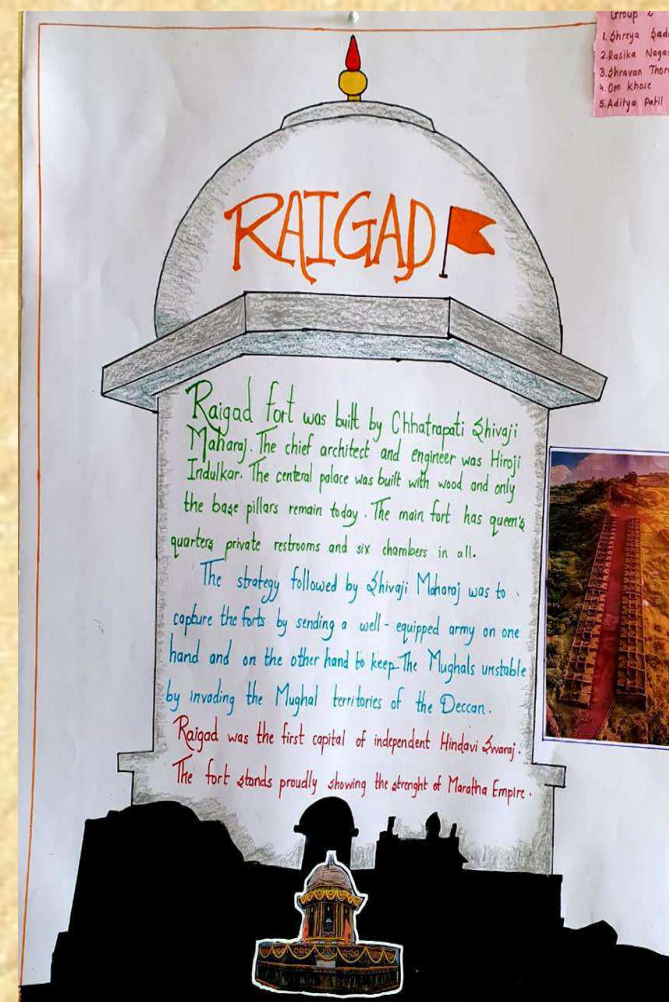 Group 2
1. Shreya
2. Rasika
3. Shravan
4. Om Khose
5. Aditya Patil
RAIGAD
Raigad fort was built by Chhatrapati Shivaji
Maharaj. The chief architect and engineer was Hiroji
Indulkar. The central palace was built with wood and only
the base pillars remain today. The main fort has queen's
quarters private restrooms and six chambers in all.
The strategy followed by Shivaji Maharaj was to
capture the forts by sending a well-equipped army on one
hand and on the other hand to keep The Mughals unstable
by invading the Mughal territories of the Deccan.
Raigad was the first capital of independent Hindavi Swaraj.
The fort stands proudly showing the strenght of Maratha Empire.